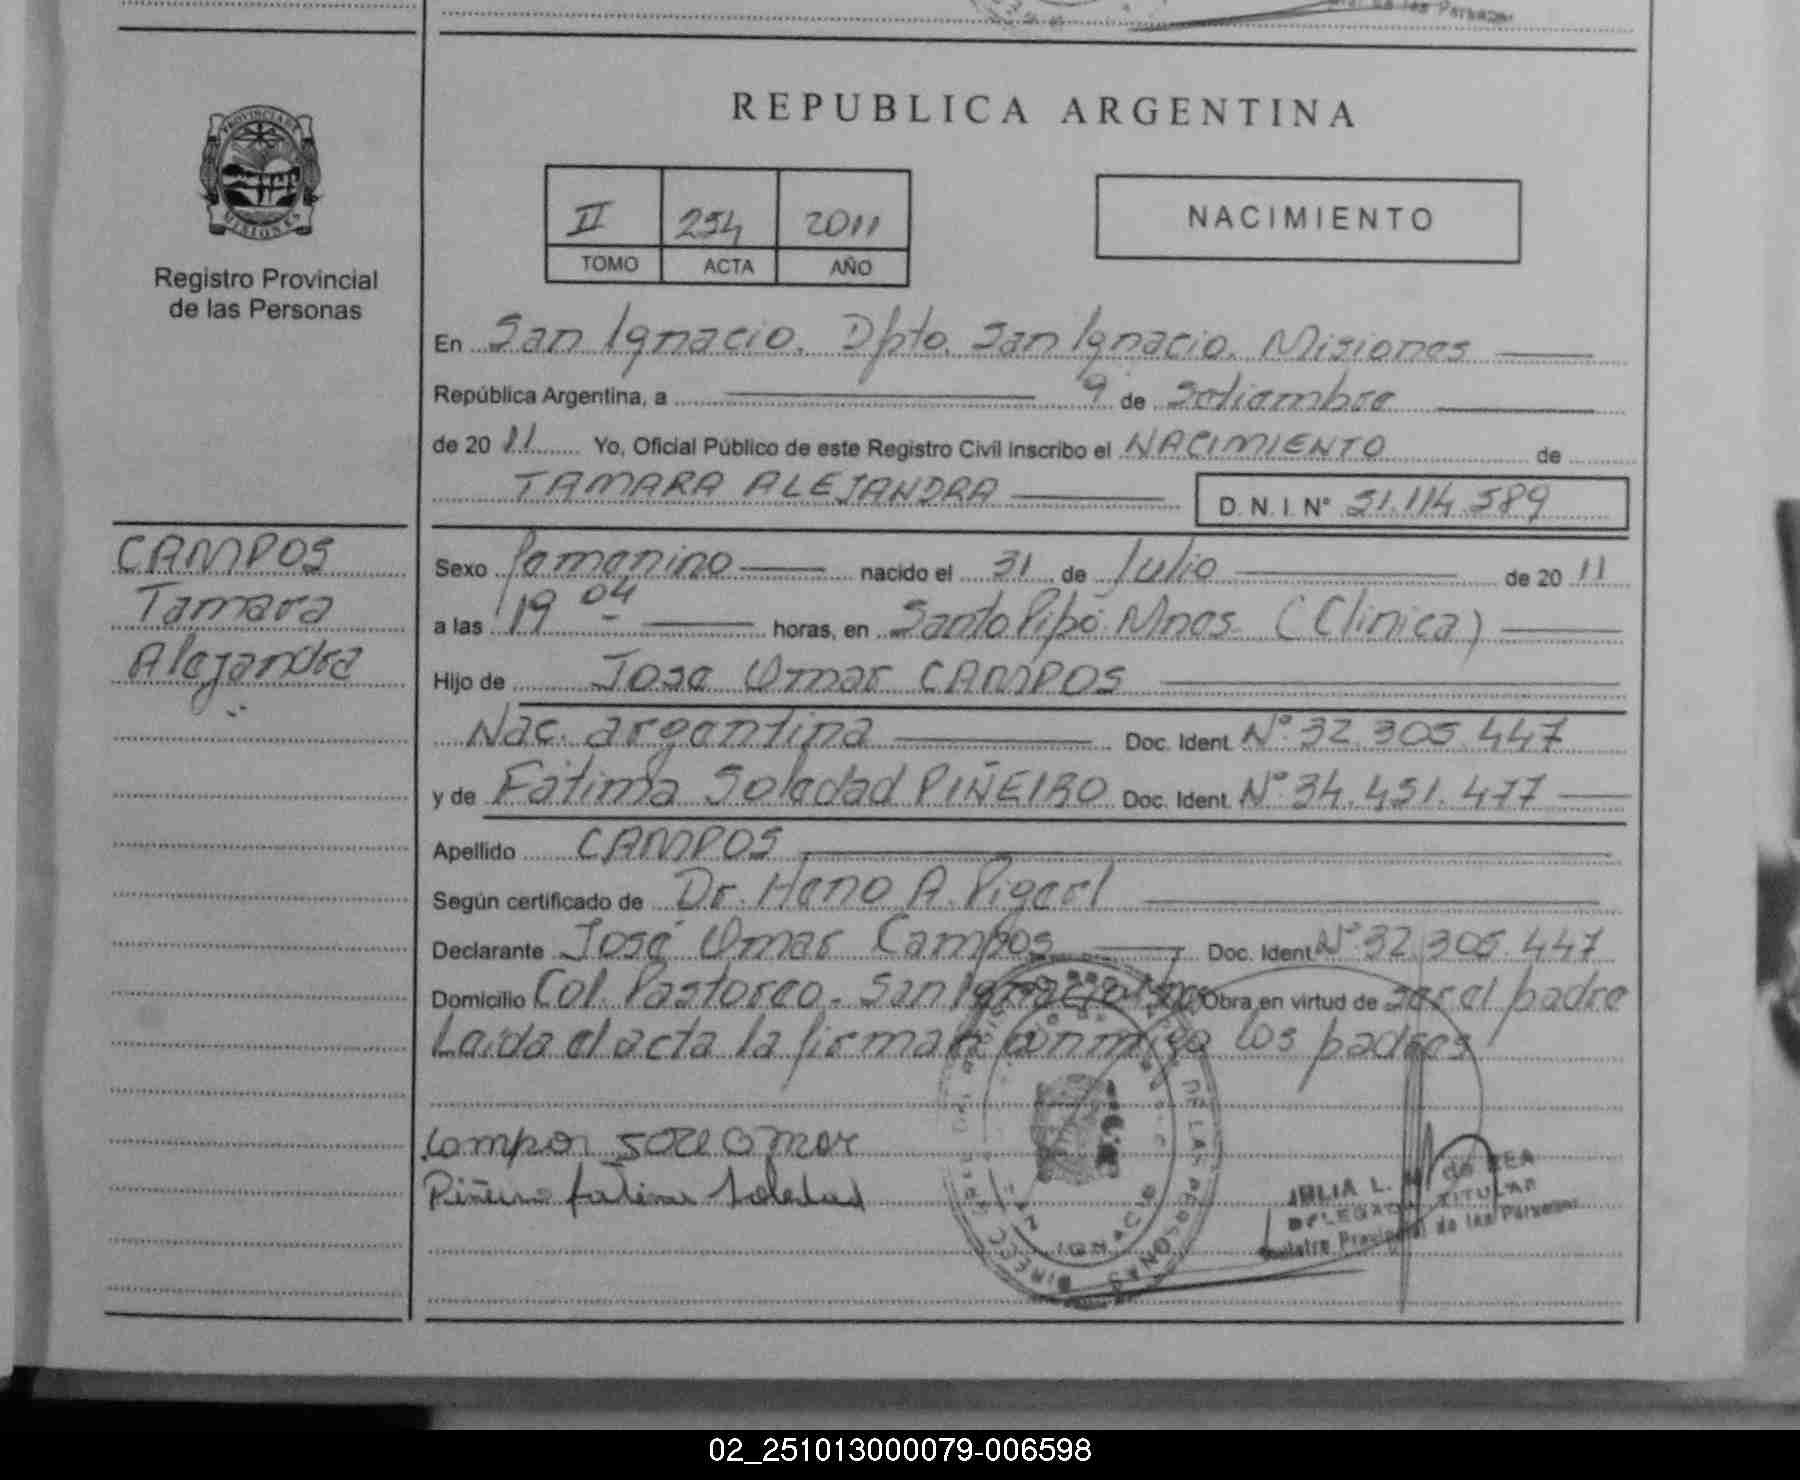 REPUBLICA ARGENTINA
PROVINCIA DE
MISIONES
Registro Provincial
de las Personas
II 254 2011
TOMO ACTA AÑO
NACIMIENTO
En San Ignacio. Dpto. San Ignacio. Misiones
República Argentina, a 9 de Setiembre
de 2011 Yo, Oficial Público de este Registro Civil inscribo el NACIMIENTO de
TAMARA ALEJANDRA D. N. I. Nº 51.114.589
CAMPOS
Tamara
Alejandra
Sexo femenino nacido el 31 de Julio de 2011
a las 19 04 horas, en Santo Pipó Mnes. (Clinica)
Hijo de Jose Omar CAMPOS
Nac. argentina Doc. Ident. Nº 32.305.447
y de Fátima Soledad PIÑEIRO Doc. Ident. Nº 34.451.477
Apellido CAMPOS
Según certificado de Dr. Heno A. Pigerl
Declarante José Omar Campos Doc. Ident Nº 32.305.447
Domicilio Col. Pastoreo - San Ignacio Obra en virtud de ser el padre
Leída el acta la firman conmigo los padres
Campos Jose Omar
Piñeiro fatima Soledad
DE LAS PERSONAS
SAN IGNACIO
JULIA L. de REA
DELEGADA TITULAR
Registro Provincial de las Personas
02_251013000079-006598